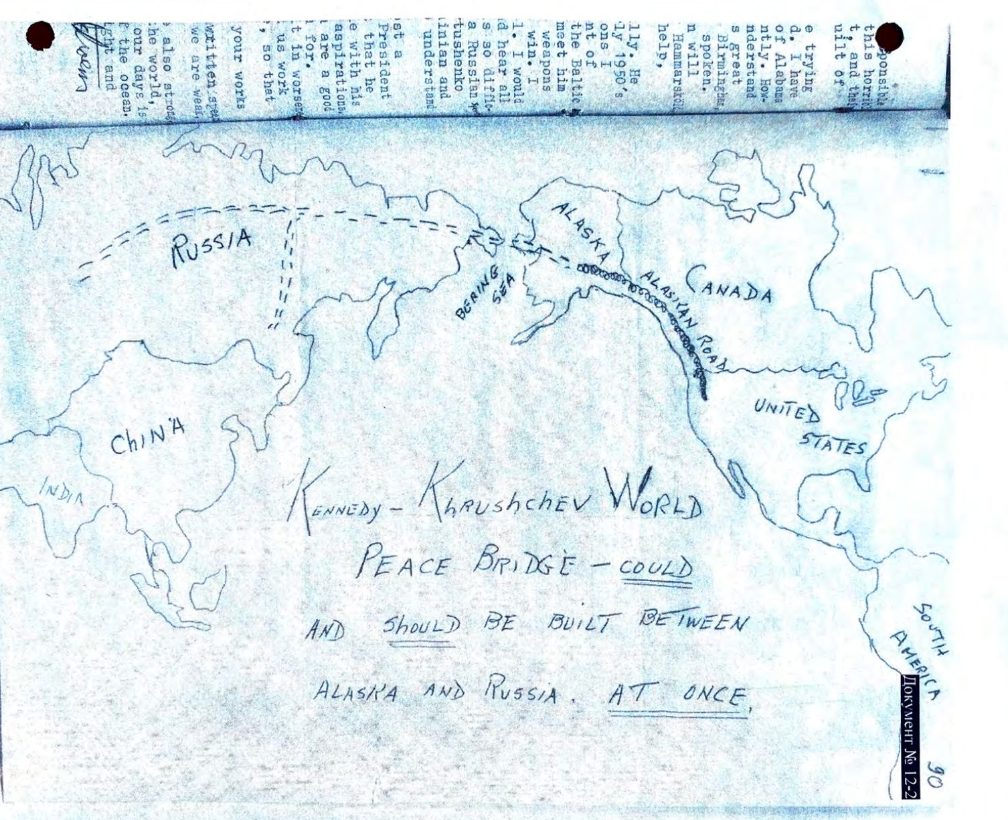 this
and
trying
I have
of Alabama
How-
great
Birmingham
spoken.
will
help,
He
1950's
I
of
the Baltic
meet him
weapons
win. I
I would
hear all
so
a Russian
and
a
President
that he
with his
aspirations
are a good
for.
in
us work
, so that
your works
written
we are
also
world,
our days
the ocean.
and
RUSSIA
ALASKA
BERING
SEA
ALASKAN ROAD
CANADA
CHINA
INDIA
UNITED
STATES
KENNEDY – KHRUSHCHEV WORLD
PEACE BRIDGE – COULD
AND SHOULD BE BUILT BETWEEN
ALASKA AND RUSSIA. AT ONCE.
SOUTH
AMERICA
Документ № 12-2
90